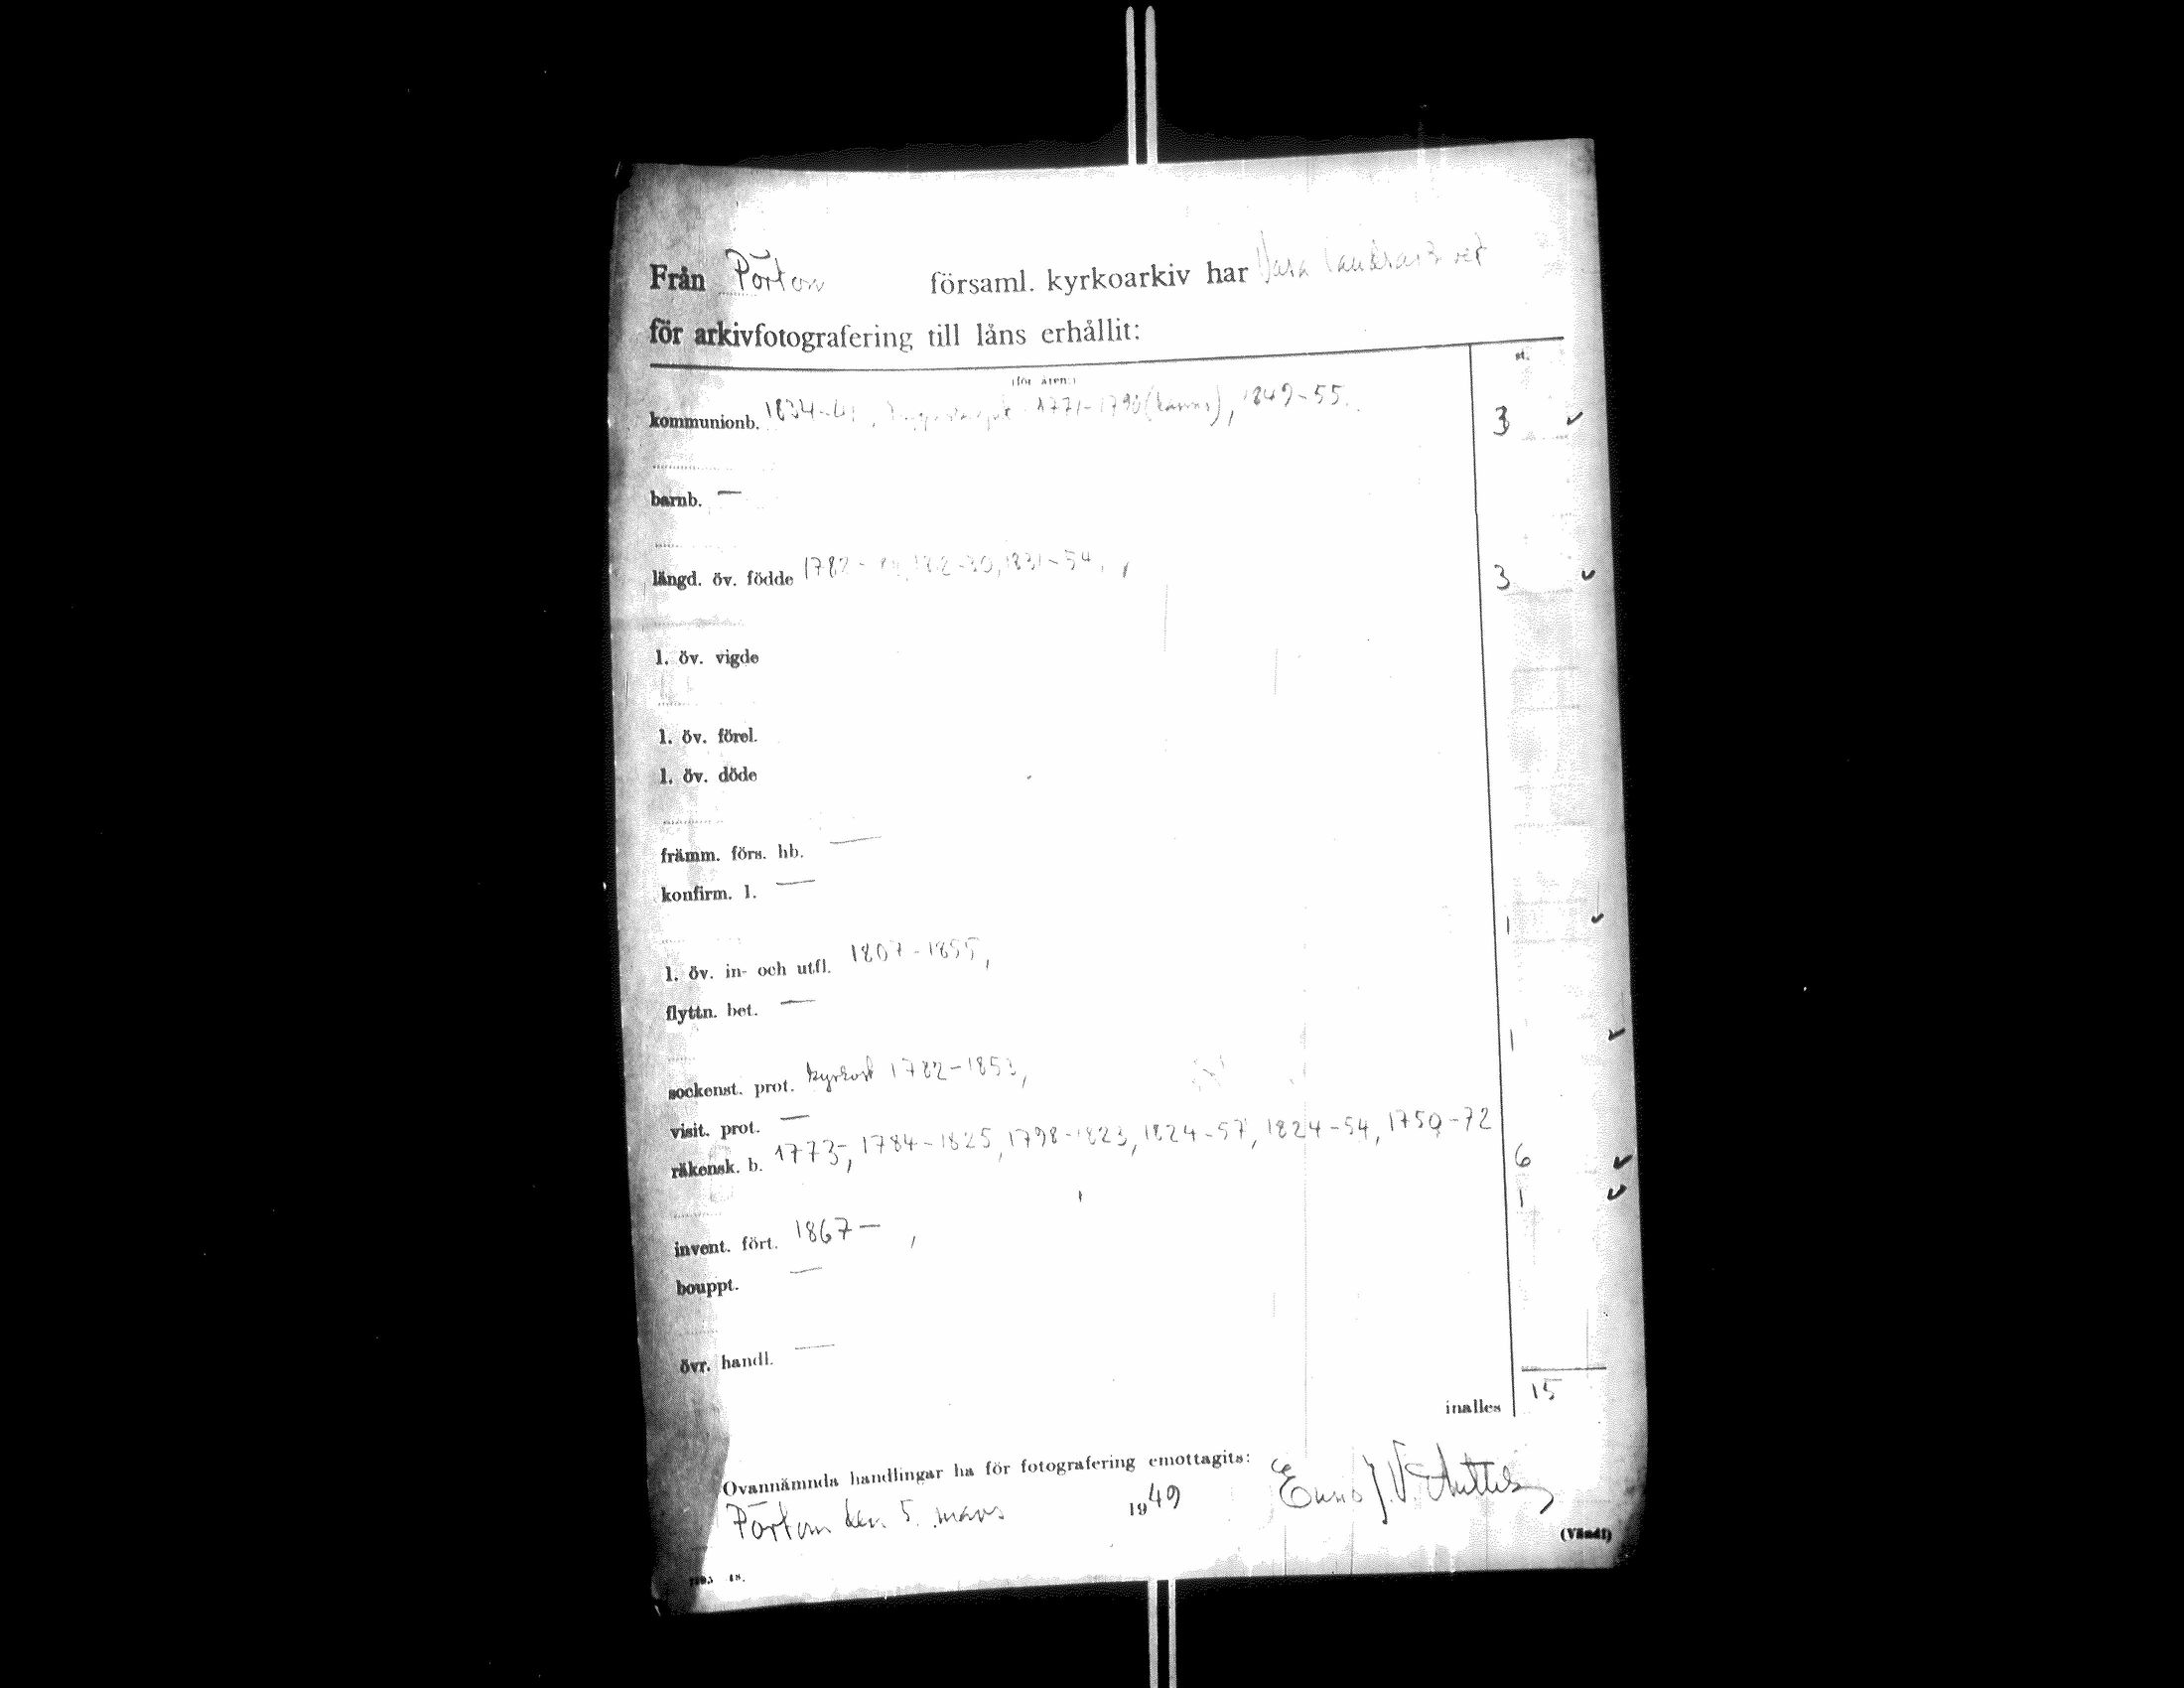 Från Pörtom församl. kyrkoarkiv har Vasa landsarkivet
för arkivfotografering till låns erhållit:
(för åren:) st.
kommunionb. 1834-41, 1771-1790 (kanss), 1849-55. 3 ✓
barnb. —
längd. öv. födde 1782- 1831-54, 3 ✓
l. öv. vigde
l. öv. förel.
l. öv. döde
främm. förs. hb. —
konfirm. l. —
l. öv. in- och utfl. 1807-1855, 1 ✓
flyttn. bet. —
sockenst. prot. kyrkost 1782-1853, 1 ✓
visit. prot. —
räkensk. b. 1773-, 1784-1825, 1798-1823, 1824-57, 1824-54, 1750-72 6 ✓
invent. fört. 1867- , 1 ✓
bouppt. —
övr. handl. —
inalles 15
Ovannämnda handlingar ha för fotografering emottagits:
Pörtom den 5. mars 1949
(Vänd!)